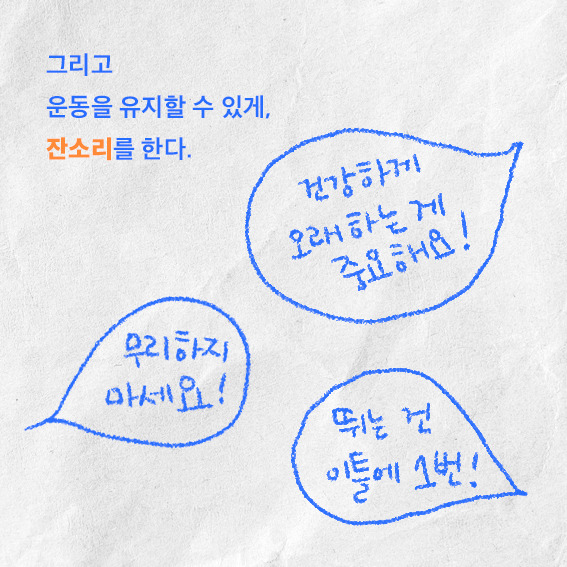 그리고
운동을 유지할 수 있게,
잔소리를 한다.
건강하게
오래 하는 게
중요해요!
무리하지
마세요!
뛰는 건
이틀에 1번!